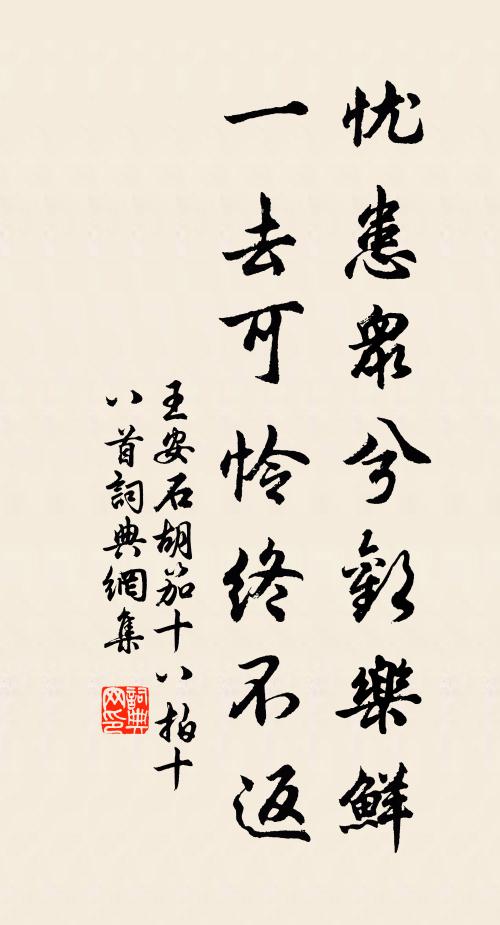 忧患眾兮歡樂鮮
一去可怜终不返
王安石胡笳十八拍十
八首詞典網集
詞典网印